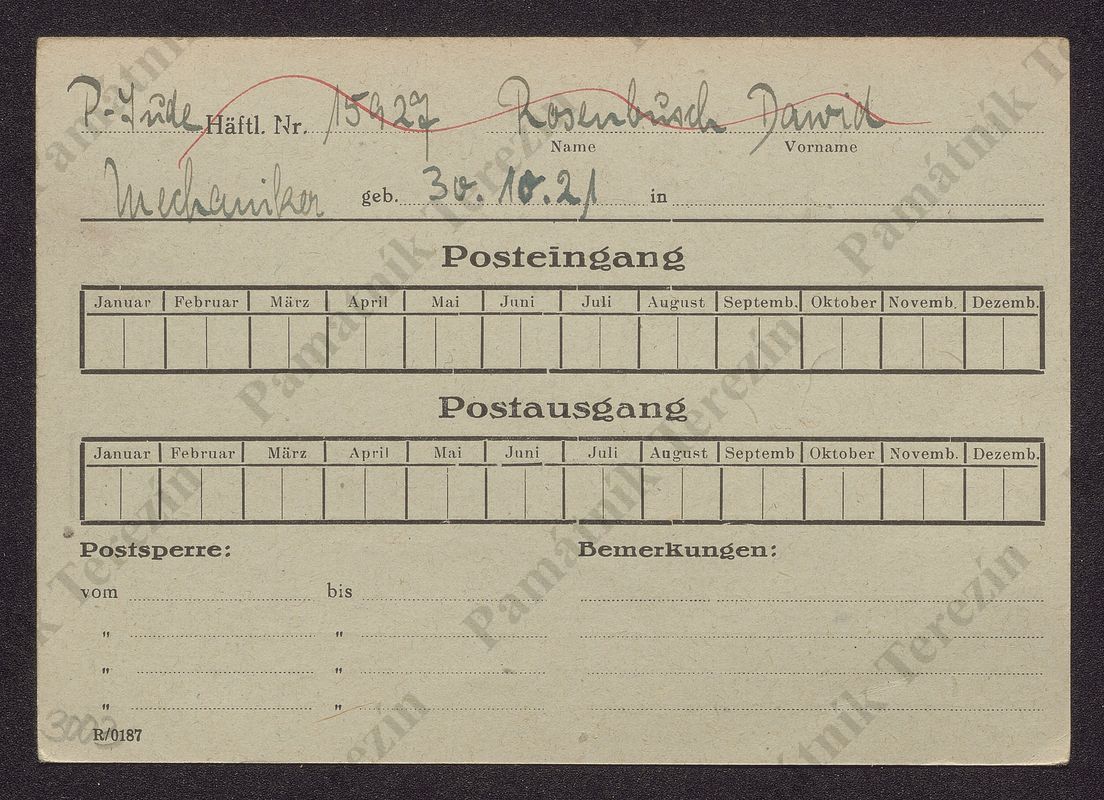 P.-Jude Häftl. Nr. 15927 Rosenbusch Dawid
Name Vorname
Mechaniker geb. 30.10.21 in
Posteingang
Januar Februar März April Mai Juni Juli August Septemb. Oktober Novemb. Dezemb.
Postausgang
Januar Februar März April Mai Juni Juli August Septemb Oktober Novemb. Dezemb.
Postsperre: Bemerkungen:
vom bis
" "
" "
" "
3003
R/0187
Památník Terezín